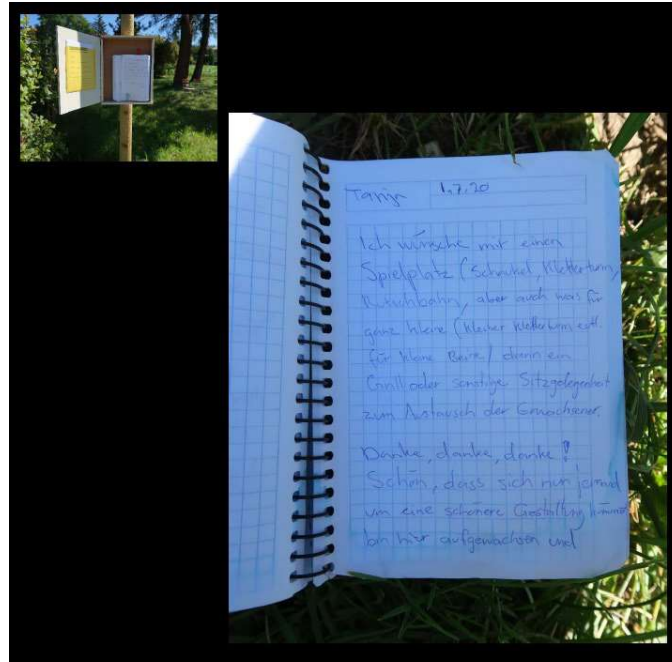 1.7.20
Ich wünsche mir einen
Spielplatz (Schaukel, Kletterturm,
Rutschbahn, aber auch was für
ganz kleine (kleiner Kletterturm
für kleine Beine) dann ein
Grill oder sonstige Sitzgelegenheit
zum Austausch der Erwachsenen.
Danke, danke, danke!
Schön, dass sich nun jemand
um eine schönere Gestaltung kümmert
bin hier aufgewachsen und